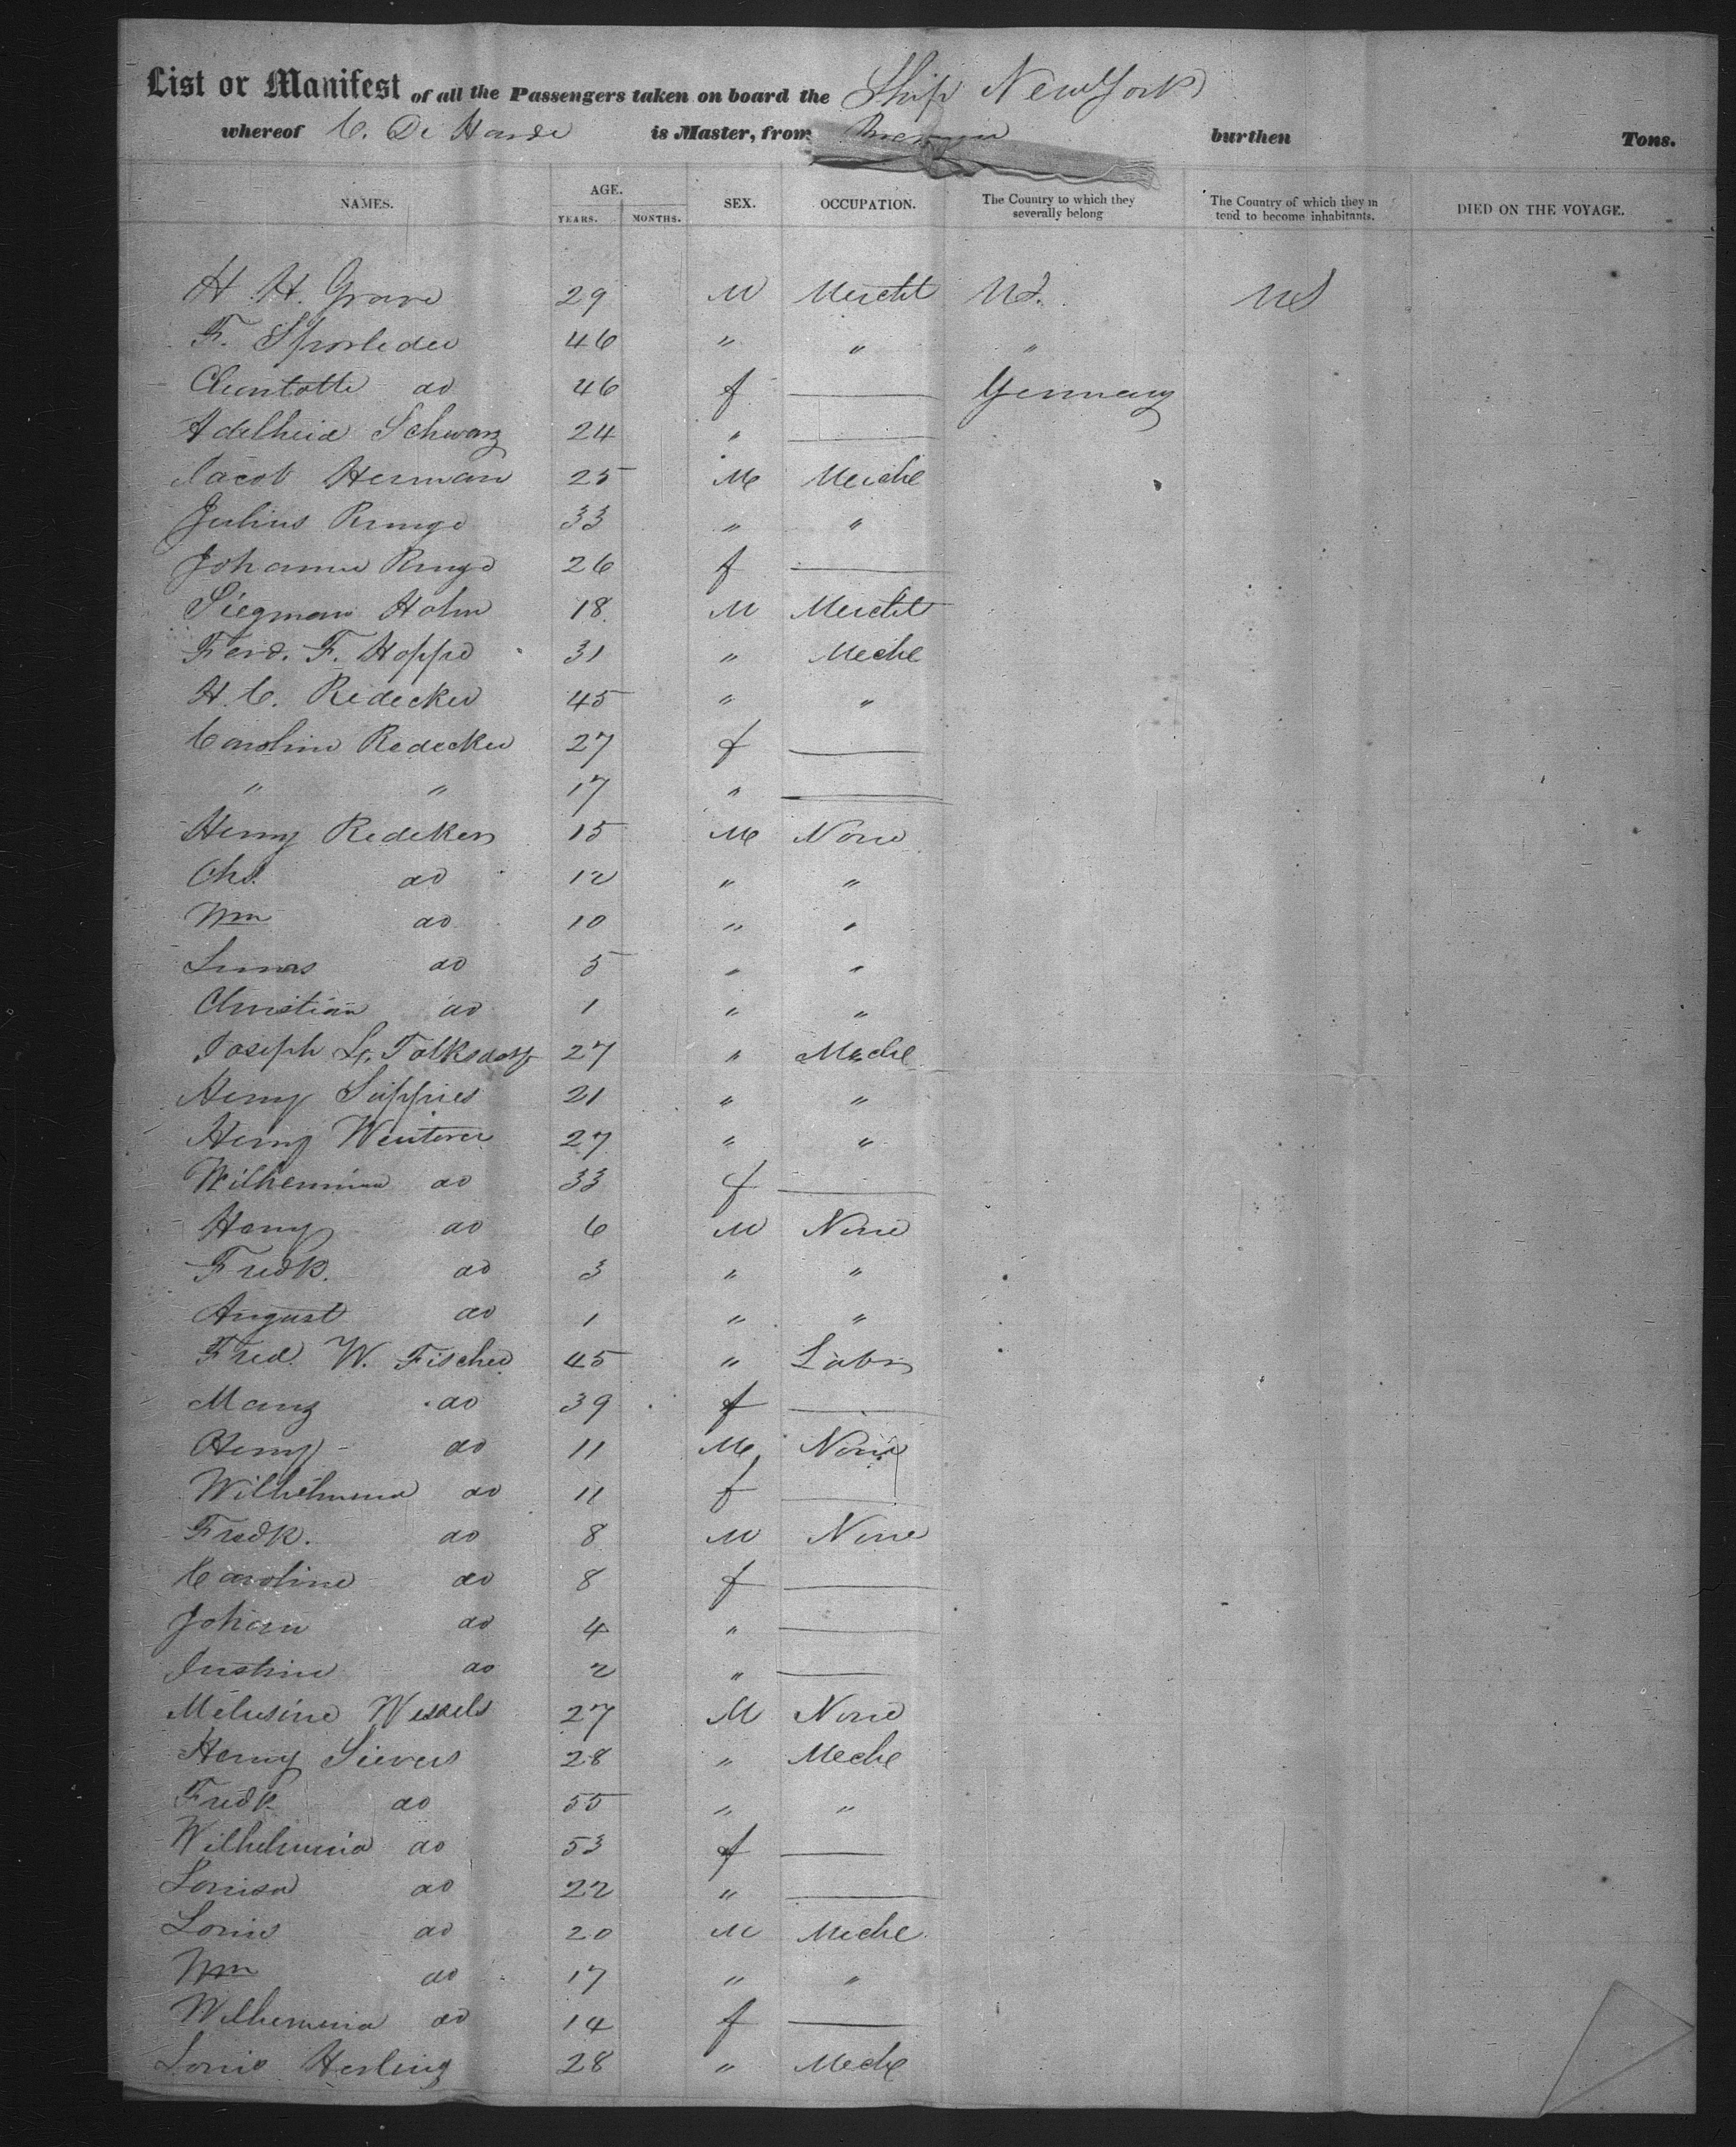 List or Manifest of all the Passengers taken on board the Ship New York
whereof C. De Harde is Master, from Bremen burthen Tons.
NAMES. AGE. YEARS. MONTHS. SEX. OCCUPATION. The Country to which they severally belong The Country of which they intend to become inhabitants. DIED ON THE VOYAGE.
H. H. Grave 29 M Mercht US. US
F. Sporleder 46 " " "
do 46 f — Germany
Adelheid Schwarz 24 " —
Jacob Herman 25 M Meche
Julius Runge 33 " "
Johanne Runge 26 f —
Siegman Hohn 18 M Mercht
Ferd. F. Hoppe 31 " Meche
H. C. Redecker 45 " "
Caroline Redecker 27 f —
" " 17 " —
Henry Redeker 15 M None
Chs. do 12 " "
Wm do 10 " "
do 5 " "
Christian do 1 " "
Joseph L. Tolksdorf 27 " Meche
Henry 21 " "
Henry 27 " "
Wilhemina do 33 f —
Henry do 6 M None
Fredk. do 3 " "
August do 1 " "
Fred. W. Fischer 45 " Labr
Mary do 39 f —
Henry do 11 M None
Wilhelmina do 11 f —
Fredk. do 8 M None
Caroline do 8 f —
Johan do 4 " —
Justine do 2 " —
Melusine Wessels 27 M None
Henry Sievers 28 " Meche
Fredk do 55 " "
Wilhelmina do 53 f —
Louisa do 22 " —
Louis do 20 M Meche
Wm do 17 " "
Wilhemina do 14 f —
Louis Herling 28 " Meche